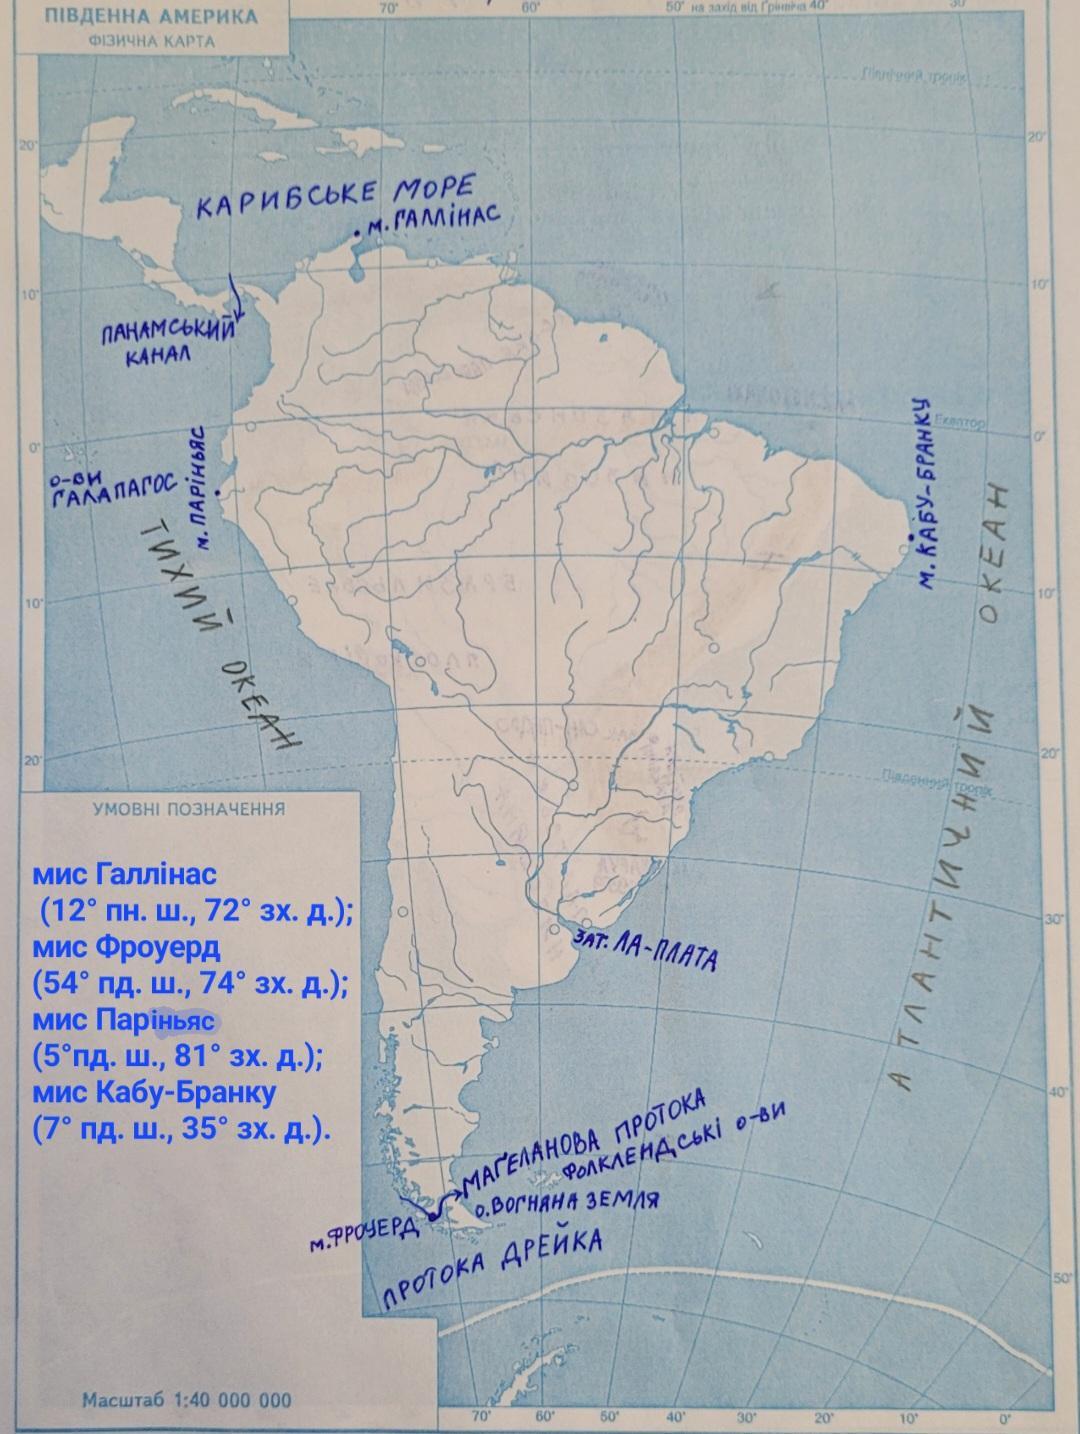 ПІВДЕННА АМЕРИКА
ФІЗИЧНА КАРТА
70° 60° 50° на захід від Грінвіча 40° 30°
Північний тропік
20° 20°
КАРИБСЬКЕ МОРЕ
м. ГАЛЛІНАС
10° 10°
ПАНАМСЬКИЙ
КАНАЛ
Екватор
0° 0°
О-ВИ
ГАЛАПАГОС
м. ПАРІНЬЯС
м. КАБУ-БРАНКУ
ТИХИЙ ОКЕАН
АТЛАНТИЧНИЙ ОКЕАН
10° 10°
20° 20°
Південний тропік
УМОВНІ ПОЗНАЧЕННЯ
мис Галлінас
(12° пн. ш., 72° зх. д.);
мис Фроуерд
(54° пд. ш., 74° зх. д.);
мис Паріньяс
(5°пд. ш., 81° зх. д.);
мис Кабу-Бранку
(7° пд. ш., 35° зх. д.).
30°
ЗАТ. ЛА-ПЛАТА
40°
МАҐЕЛАНОВА ПРОТОКА
ФОЛКЛЕНДСЬКІ О-ВИ
О. ВОГНЯНА ЗЕМЛЯ
м. ФРОУЕРД
ПРОТОКА ДРЕЙКА
50°
Масштаб 1:40 000 000
70° 60° 50° 40° 30° 20° 10° 0°